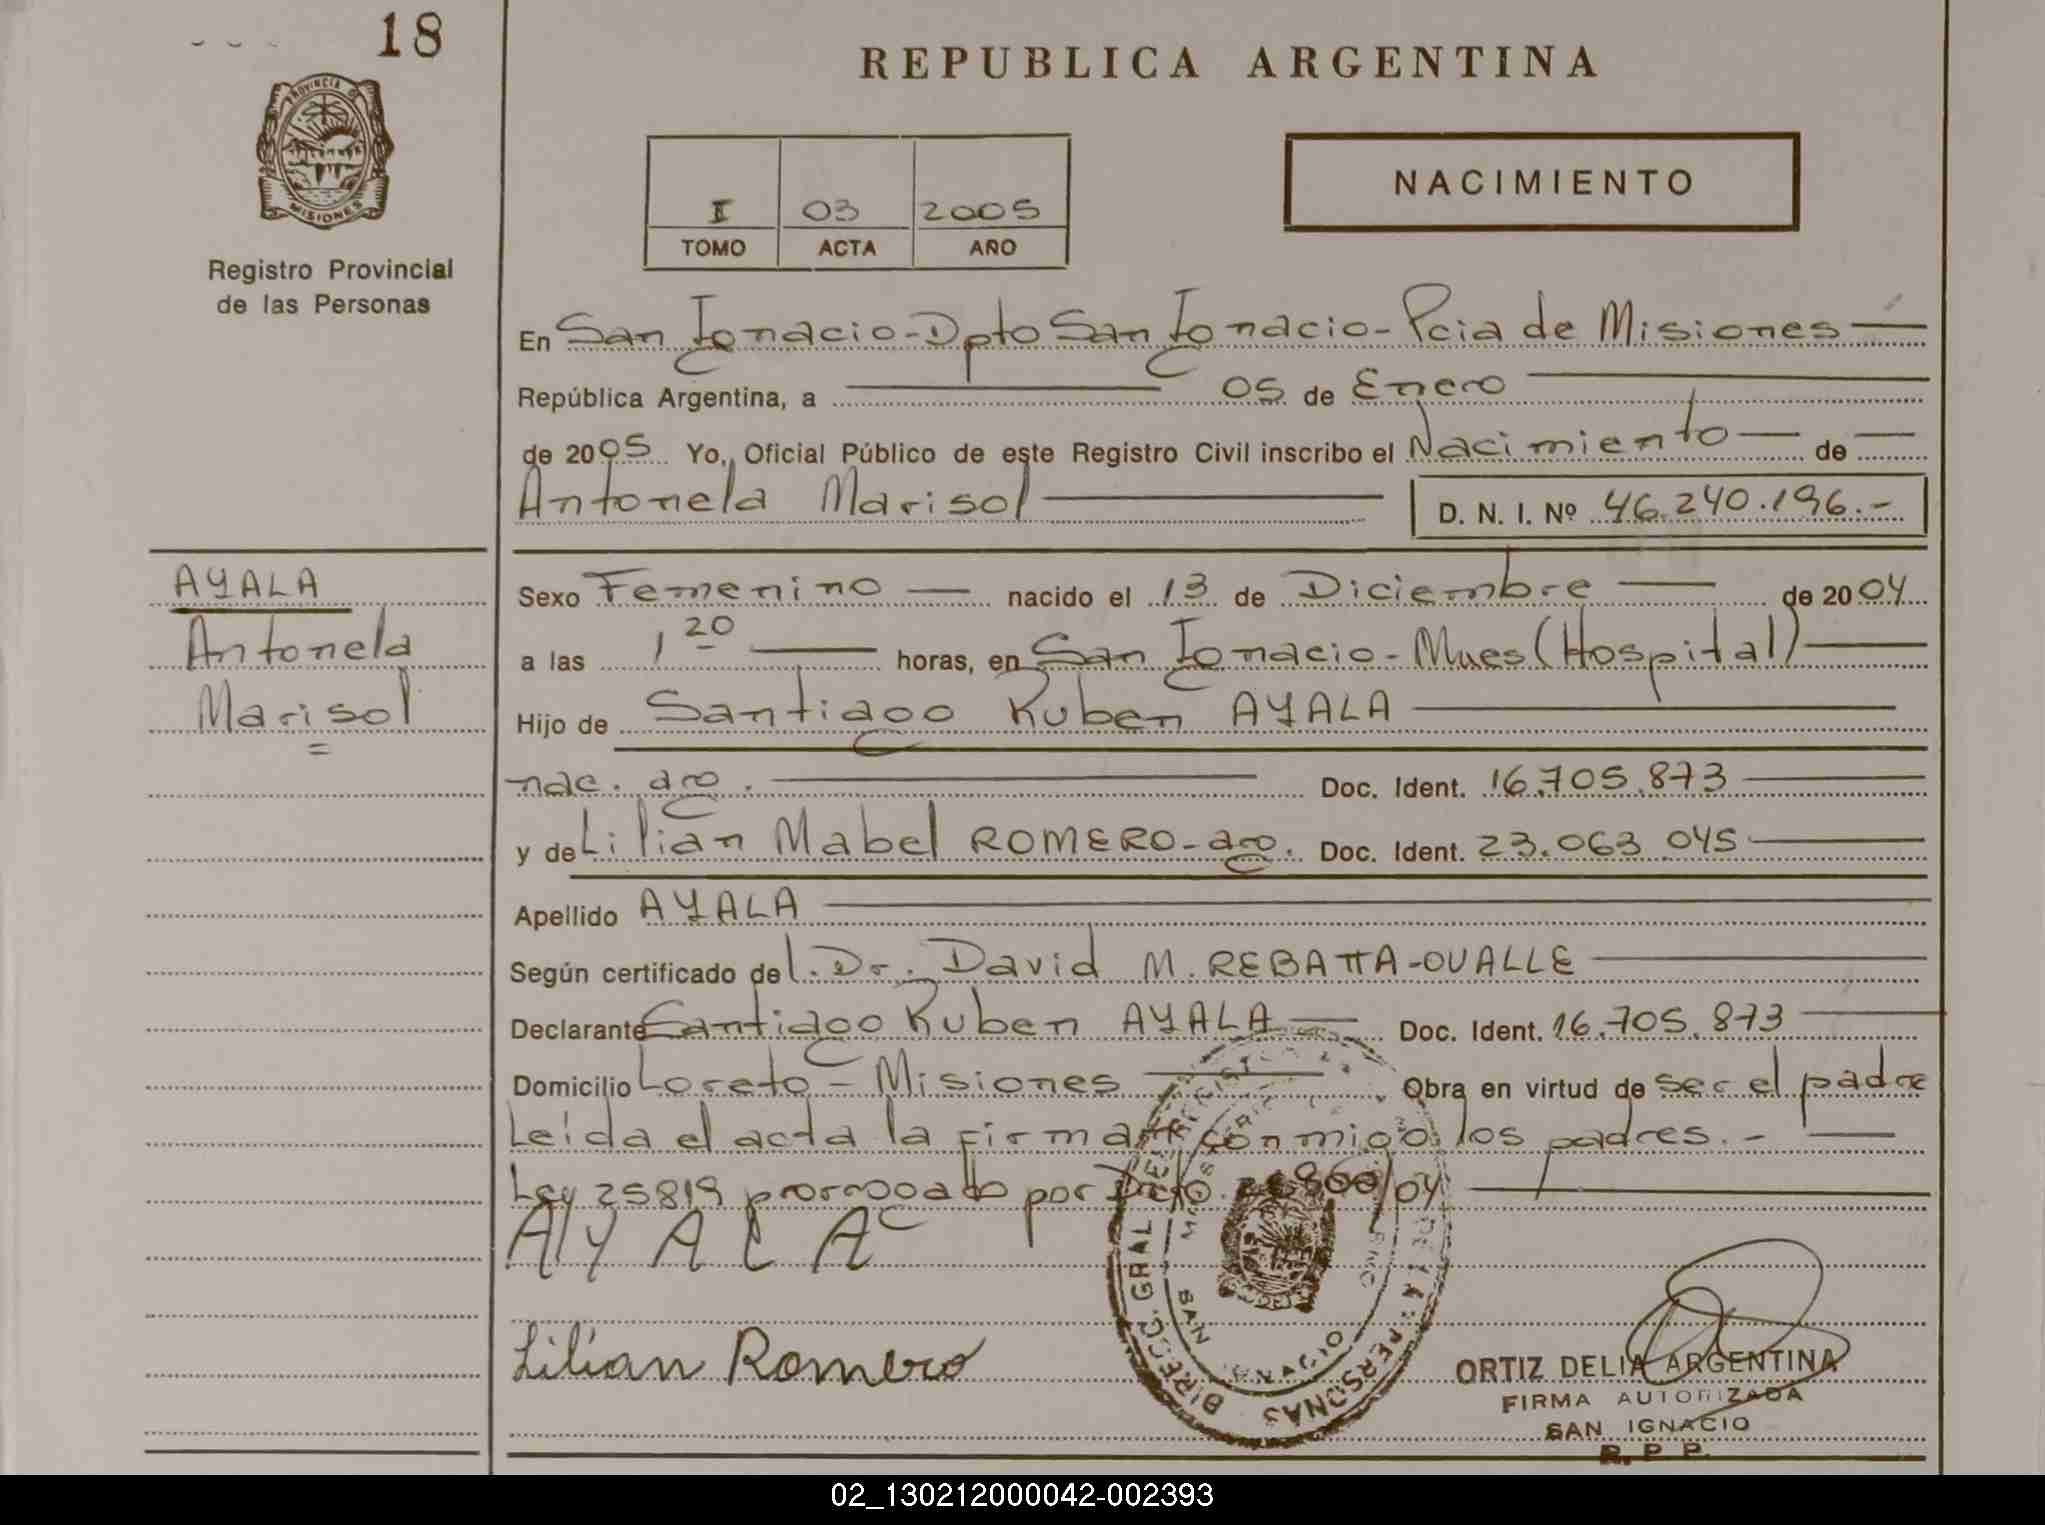 18
PROVINCIA DE
MISIONES
Registro Provincial
de las Personas
REPUBLICA ARGENTINA
I 03 2005
TOMO ACTA AÑO
NACIMIENTO
En San Ignacio - Dpto San Ignacio - Pcia de Misiones
República Argentina, a 05 de Enero
de 2005 Yo, Oficial Público de este Registro Civil inscribo el Nacimiento de
Antonela Marisol D. N. I. Nº 46.240.196.-
AYALA
Antonela
Marisol
Sexo Femenino nacido el 13 de Diciembre de 2004
a las 1 20 horas, en San Ignacio - Mnes (Hospital)
Hijo de Santiago Ruben AYALA
nac. arg. Doc. Ident. 16.705.873
y de Lilian Mabel ROMERO - arg. Doc. Ident. 23.063.045
Apellido AYALA
Según certificado del Dr. David M. REBATTA-OVALLE
Declarante Santiago Ruben AYALA Doc. Ident. 16.705.873
Domicilio Loreto - Misiones Obra en virtud de ser el padre
Leída el acta la firman conmigo los padres.-
Ley 25819 prorrogado por Dcto. 1800/04
AYALA
Lilian Romero
DIRECC. GRAL DE LAS PERSONAS
SAN
ORTIZ DELIA ARGENTINA
FIRMA AUTORIZADA
SAN IGNACIO
R. P. P.
02_130212000042-002393